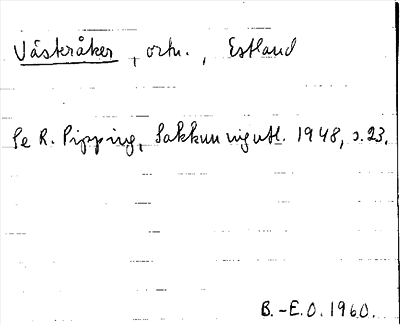 Väskråker, ortn., Estland
Se R. Pipping, Sakkunnigutl. 1948, s.23.
B.-E.O. 1960.